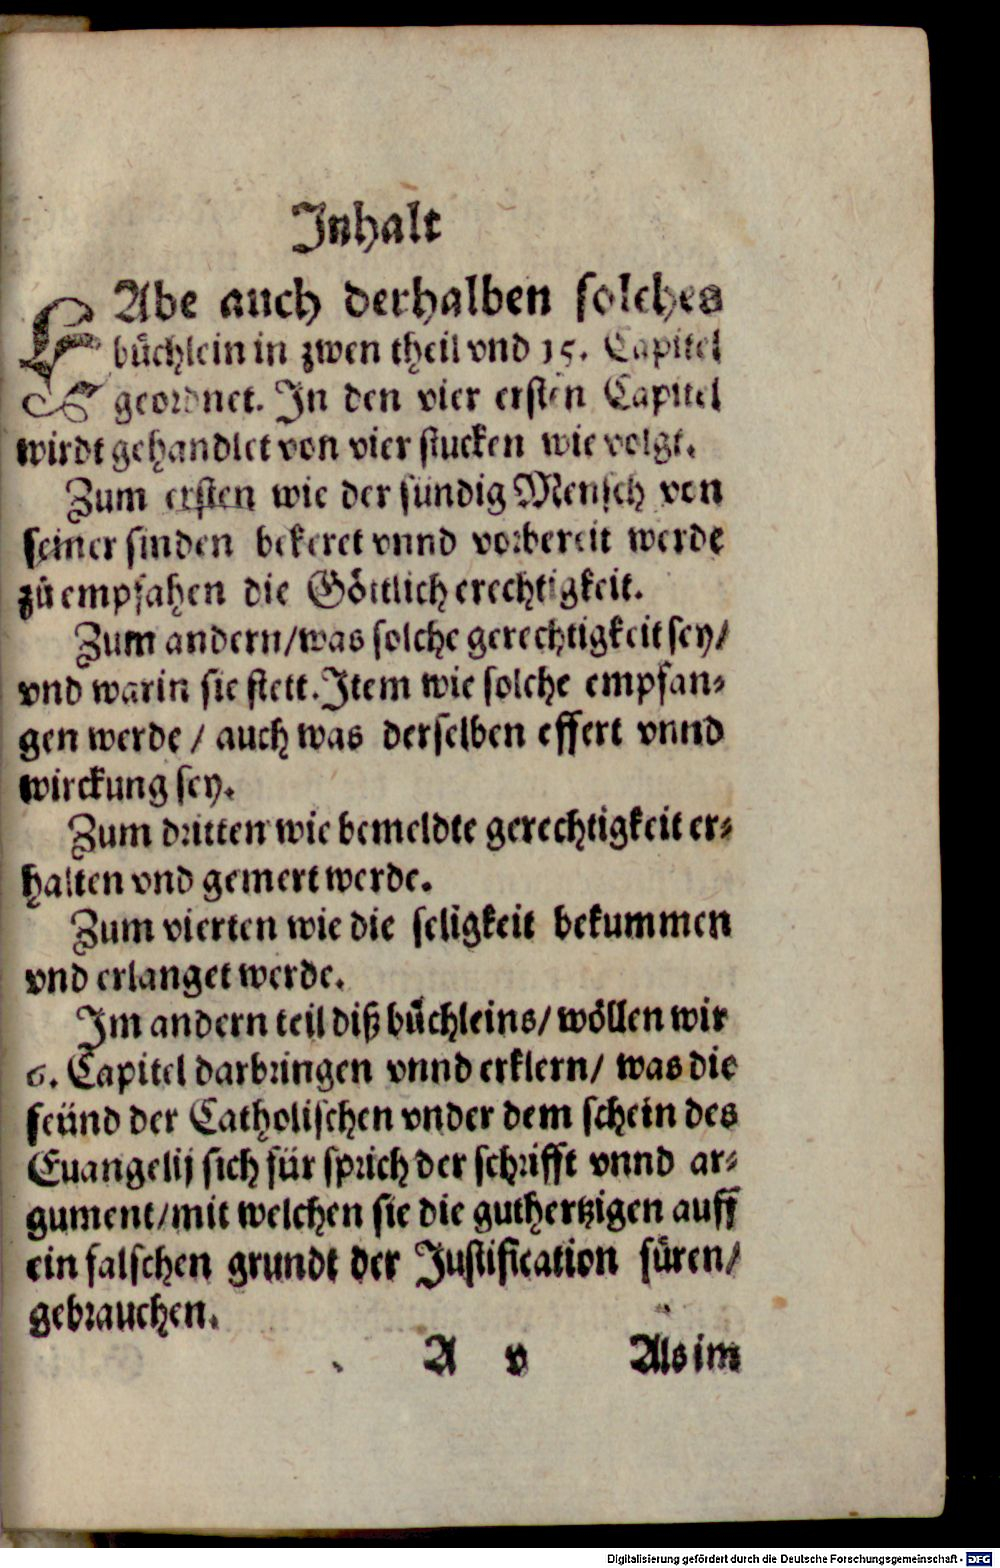 Inhalt
HAbe auch derhalben solches
büchlein in zwen theil vnd 15. Capitel
geordnet. In den vier ersten Capitel
wirdt gehandlet von vier stucken wie volgt.
Zum ersten wie der sündig Mensch von
seiner sinden bekeret vnnd vorbereit werde
zů empfahen die Göttlich erechtigkeit.
Zum andern/was solche gerechtigkeit sey/
vnd warin sie stett. Item wie solche empfan⸗
gen werde / auch was derselben effert vnnd
wirckung sey.
Zum dritten wie bemeldte gerechtigkeit er⸗
halten vnd gemert werde.
Zum vierten wie die seligkeit bekummen
vnd erlanget werde.
Im andern teil diß büchleins/wöllen wir
6. Capitel darbringen vnnd erklern/ was die
feünd der Catholischen vnder dem schein des
Euangelij sich für sprich der schrifft vnnd ar⸗
gument/mit welchen sie die guthertzigen auff
ein falschen grundt der Justification füren/
gebrauchen.
A v Als im
Digitalisierung gefördert durch die Deutsche Forschungsgemeinschaft - DFG